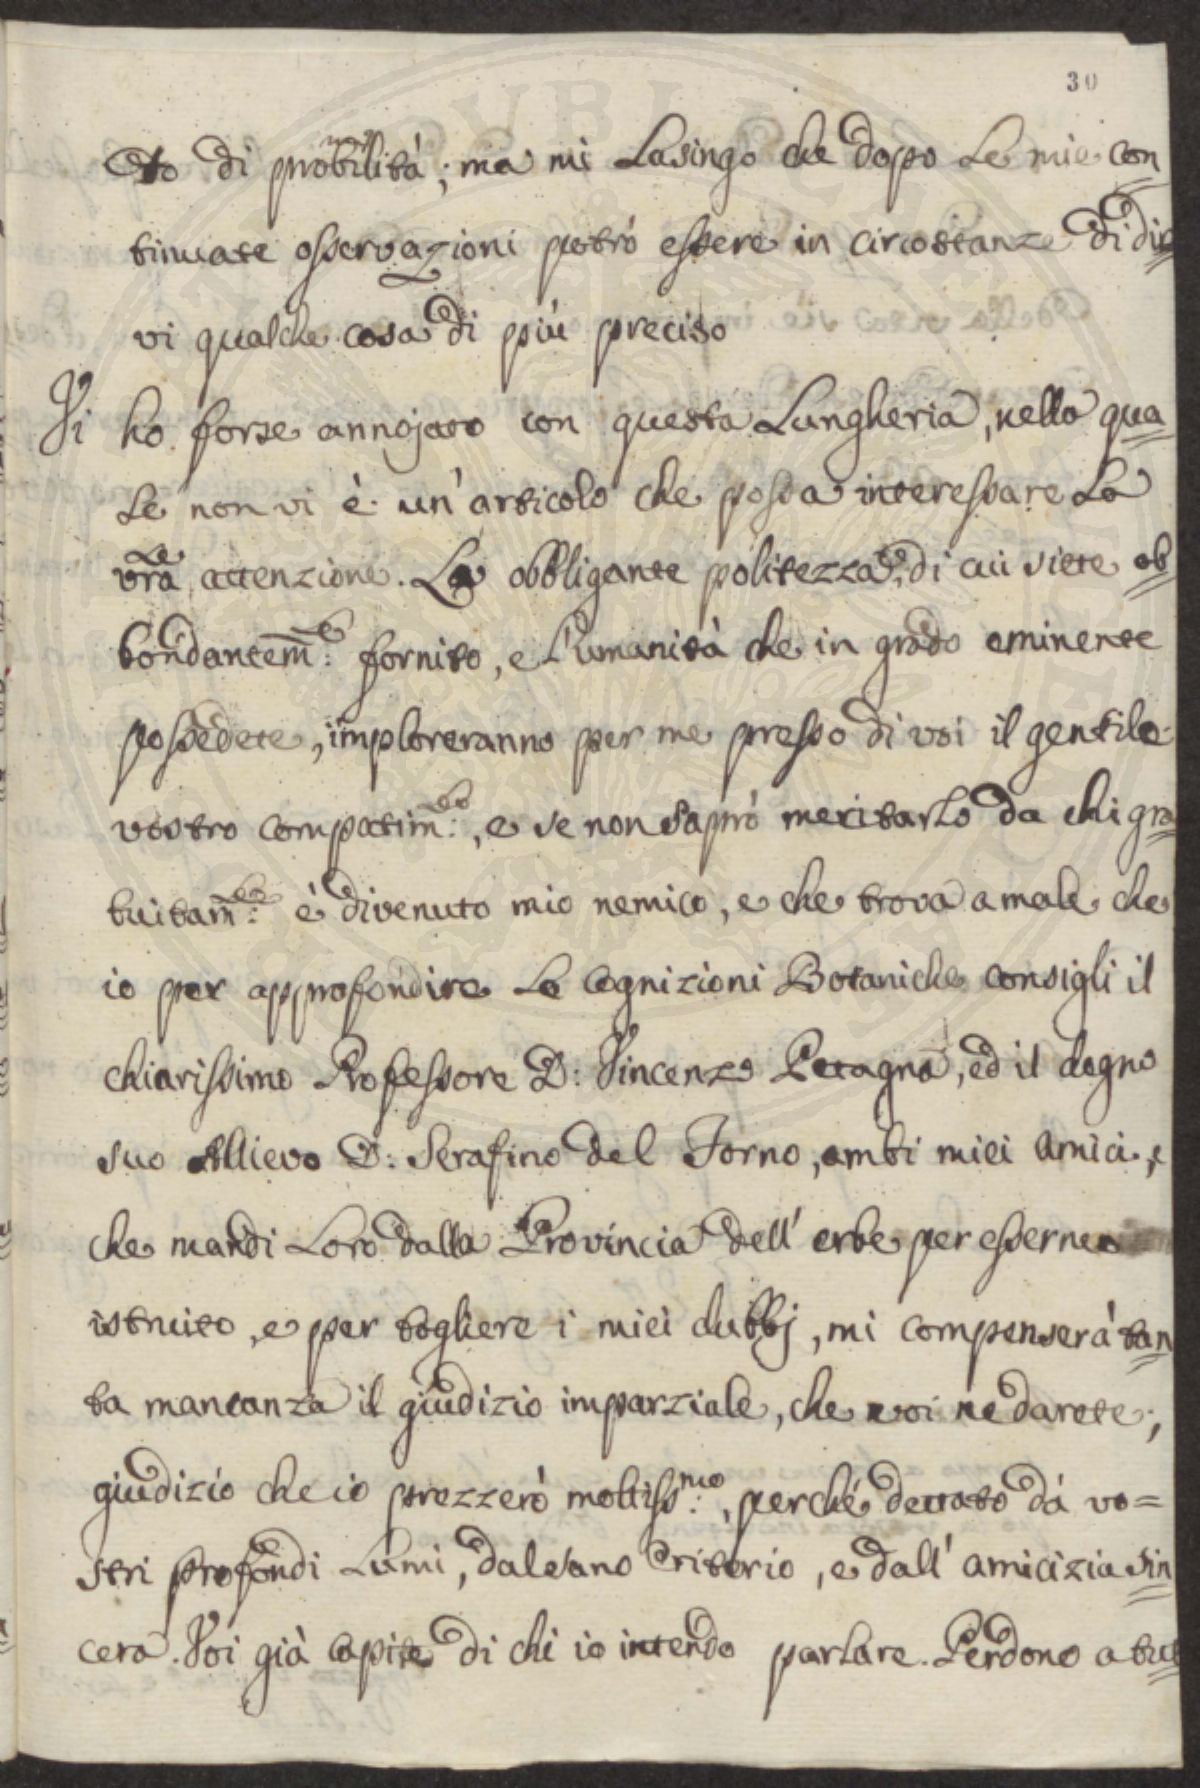 30
to di probabilità; ma mi Lusingo che dopo Le mie con
tinuate osservazioni potrò essere in circostanze di dir
vi qualche cosa di più preciso
Vi ho forse annojato con questa Lungheria, nella qua=
Le non vi è un' articolo che possa interessare La
vr̃a attenzione. La obbligante politezza, di cui siete ab=
bondantem̃:te fornito, e L'umanità che in grado eminente
possedete, imploreranno per me presso di voi il gentile
vostro compatim:to, e se non saprò meritarlo da chi gra=
tuitam̃:te è divenuto mio nemico, e che trova a male che
io per approfondire Le Cognizioni Botaniche consigli il
chiarissimo Professore D: Vincenzo Petagna, ed il degno
suo Allievo D: Serafino del Torno, ambi miei Amici, e
che mandi Loro dalla Provincia dell' erbe per esserne
istruito, e per togliere i miei dubbj, mi compenserà tan=
ta mancanza il giudizio imparziale, che voi ne darete;
giudizio che io prezzerò moltiss:mo, perché dettato dà vo=
stri profondi Lumi, dal sano Criterio, e dall' amicizia sin=
cera. Voi già capite di chi io intendo parlare. Perdono a tut=